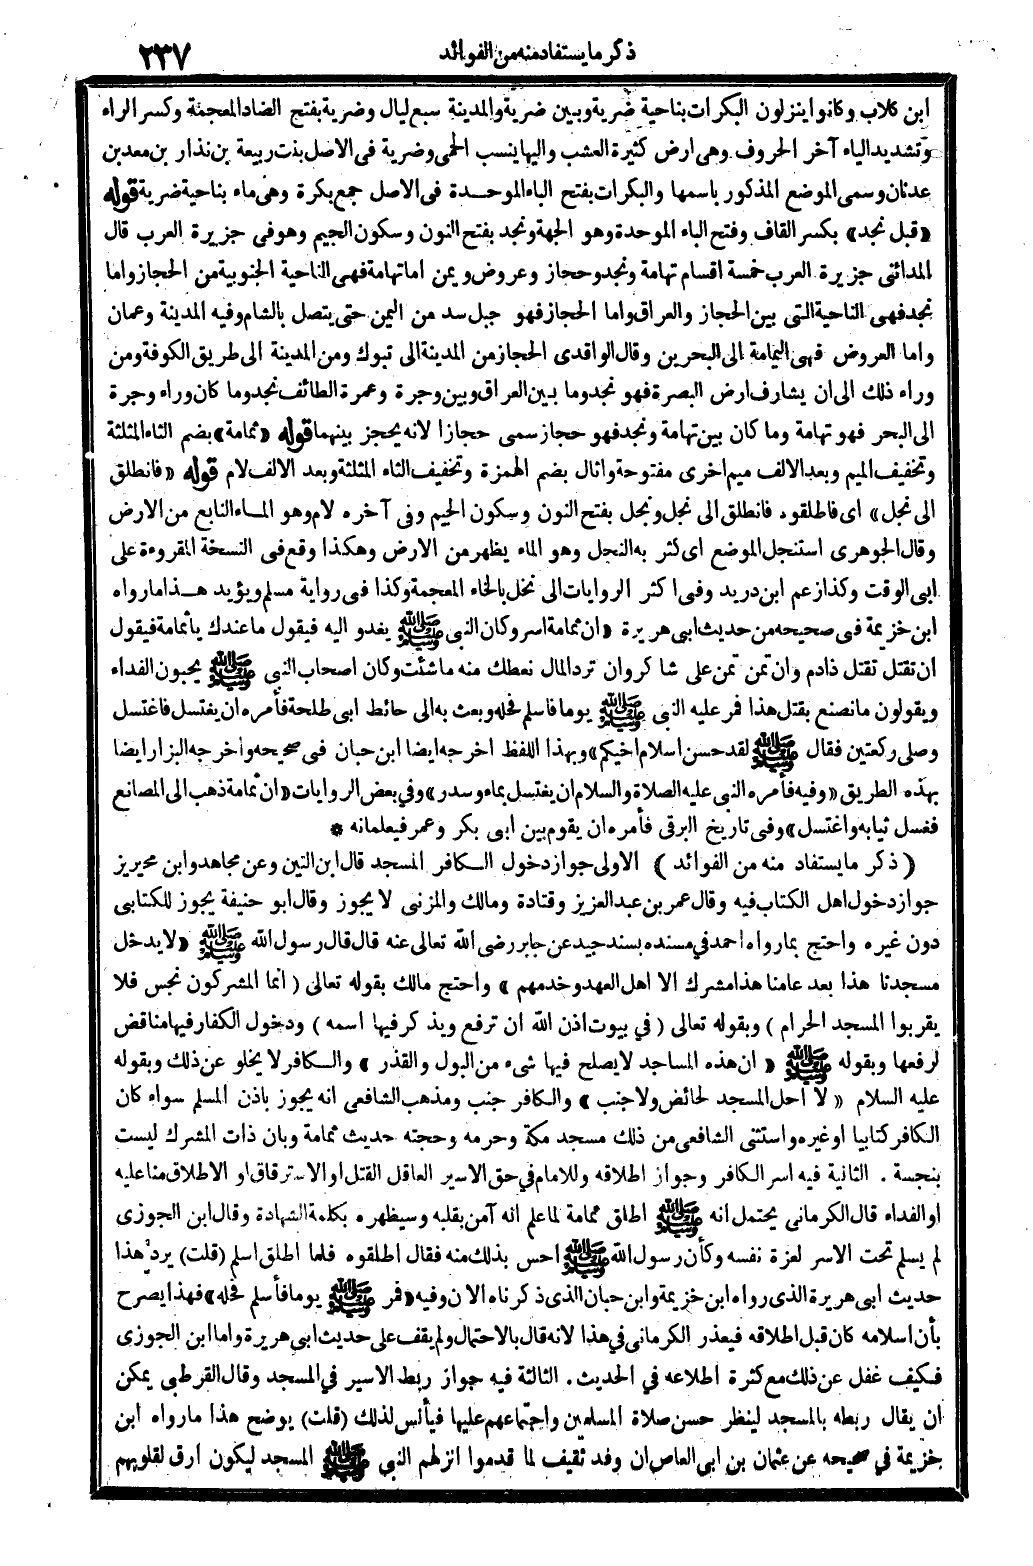 ذكر ما يستفاد منه من الفوائد ٢٣٧
ابن كلاب وكانوا ينزلون البكرات بناحية ضرية وبين ضرية والمدينة سبع ليال وضرية بفتح الضاد المعجمة وكسر الراء
وتشديد الياء آخر الحروف وهى ارض كثيرة العشب واليها ينسب الحمى وضرية فى الاصل بنت ربيعة بن نذار بن معد بن
عدنان وسمى الموضع المذكور باسمها والبكرات بفتح الباء الموحدة فى الاصل جمع بكرة وهى ماء بناحية ضرية قوله
«قبل نجد» بكسر القاف وفتح الباء الموحدة وهو الجهة ونجد بفتح النون وسكون الجيم وهو فى جزيرة العرب قال
المدائنى جزيرة العرب خمسة اقسام تهامة ونجد وحجاز وعروض ويمن اما تهامة فهى الناحية الجنوبية من الحجاز واما
نجد فهى الناحية التى بين الحجاز والعراق واما الحجاز فهو جبل سد من اليمن حتى يتصل بالشام وفيه المدينة وعمان
واما العروض فهى اليمامة الى البحرين وقال الواقدى الحجاز من المدينة الى تبوك ومن المدينة الى طريق الكوفة ومن
وراء ذلك الى ان يشارف ارض البصرة فهو نجد وما بين العراق وبين وجرة وعمرة الطائف نجد وما كان وراء وجرة
الى البحر فهو تهامة وما كان بين تهامة ونجد فهو حجاز سمى حجازا لانه يحجز بينهما قوله «ثمامة» بضم الثاء المثلثة
وتخفيف الميم وبعد الالف ميم اخرى مفتوحة واثال بضم الهمزة وتخفيف الثاء المثلثة وبعد الالف لام قوله «فانطلق
الى نجل» اى فاطلقوه فانطلق الى نجل ونجل بفتح النون وسكون الجيم وفى آخره لام وهو الماء النابع من الارض
وقال الجوهرى استنجل الموضع اى كثر به النجل وهو الماء يظهر من الارض وهكذا وقع فى النسخة المقروءة على
ابى الوقت وكذا زعم ابن دريد وفى اكثر الروايات الى نخل بالخاء المعجمة وكذا فى رواية مسلم ويؤيد هذا ما رواه
ابن خزيمة فى صحيحه من حديث ابى هريرة «ان ثمامة اسر وكان النبى ﷺ يغدو اليه فيقول ما عندك يا ثمامة فيقول
ان تقتل تقتل ذا دم وان تمن تمن على شاكر وان ترد المال نعطك منه ما شئت وكان اصحاب النبى ﷺ يحبون الفداء
ويقولون ما نصنع بقتل هذا فمر عليه النبى ﷺ يوما فاسلم فحله وبعث به الى حائط ابى طلحة فأمره ان يغتسل فاغتسل
وصلى ركعتين فقال ﷺ لقد حسن اسلام اخيكم» وبهذا اللفظ اخرجه ايضا ابن حبان فى صحيحه واخرجه البزار ايضا
بهذه الطريق «وفيه فأمره النبى عليه الصلاة والسلام ان يغتسل بماء وسدر» وفي بعض الروايات «ان ثمامة ذهب الى المصانع
فغسل ثيابه واغتسل» وفى تاريخ البرقى فأمره ان يقوم بين ابى بكر وعمر فيعلمانه *
( ذكر ما يستفاد منه من الفوائد ) الاولى جواز دخول الكافر المسجد قال ابن التين وعن مجاهد وابن محيريز
جواز دخول اهل الكتاب فيه وقال عمر بن عبد العزيز وقتادة ومالك والمزنى لا يجوز وقال ابو حنيفة يجوز للكتابى
دون غيره واحتج بما رواه احمد في مسنده بسند جيد عن جابر رضى الله تعالى عنه قال قال رسول الله ﷺ «لا يدخل
مسجدنا هذا بعد عامنا هذا مشرك الا اهل العهد وخدمهم» واحتج مالك بقوله تعالى ( انما المشركون نجس فلا
يقربوا المسجد الحرام ) وبقوله تعالى ( في بيوت اذن الله ان ترفع ويذكر فيها اسمه ) ودخول الكفار فيها مناقض
لرفعها وبقوله ﷺ « ان هذه المساجد لا يصلح فيها شىء من البول والقذر » والكافر لا يخلو عن ذلك وبقوله
عليه السلام « لا احل المسجد لحائض ولا جنب » والكافر جنب ومذهب الشافعى انه يجوز باذن المسلم سواء كان
الكافر كتابيا او غيره واستثنى الشافعى من ذلك مسجد مكة وحرمه وحجته حديث ثمامة وبان ذات المشرك ليست
بنجسة . الثانية فيه اسر الكافر وجواز اطلاقه وللامام في حق الاسير العاقل القتل او الاسترقاق او الاطلاق منا عليه
او الفداء قال الكرمانى يحتمل انه ﷺ اطلق ثمامة لما علم انه آمن بقلبه وسيظهره بكلمة الشهادة وقال ابن الجوزى
لم يسلم تحت الاسر لعزة نفسه وكأن رسول الله ﷺ احس بذلك منه فقال اطلقوه فلما اطلق اسلم (قلت) يرد هذا
حديث ابى هريرة الذى رواه ابن خزيمة وابن حبان الذى ذكرناه الان وفيه «فمر ﷺ يوما فأسلم فحله» فهذا يصرح
بأن اسلامه كان قبل اطلاقه فيعذر الكرمانى في هذا لانه قال بالاحتمال ولم يقف على حديث ابى هريرة واما ابن الجوزى
فكيف غفل عن ذلك مع كثرة اطلاعه في الحديث . الثالثة فيه جواز ربط الاسير في المسجد وقال القرطبى يمكن
ان يقال ربطه بالمسجد لينظر حسن صلاة المسلمين واجتماعهم عليها فيأنس لذلك (قلت) يوضح هذا ما رواه ابن
خزيمة في صحيحه عن عثمان بن ابى العاص ان وفد ثقيف لما قدموا انزلهم النبى ﷺ المسجد ليكون ارق لقلوبهم